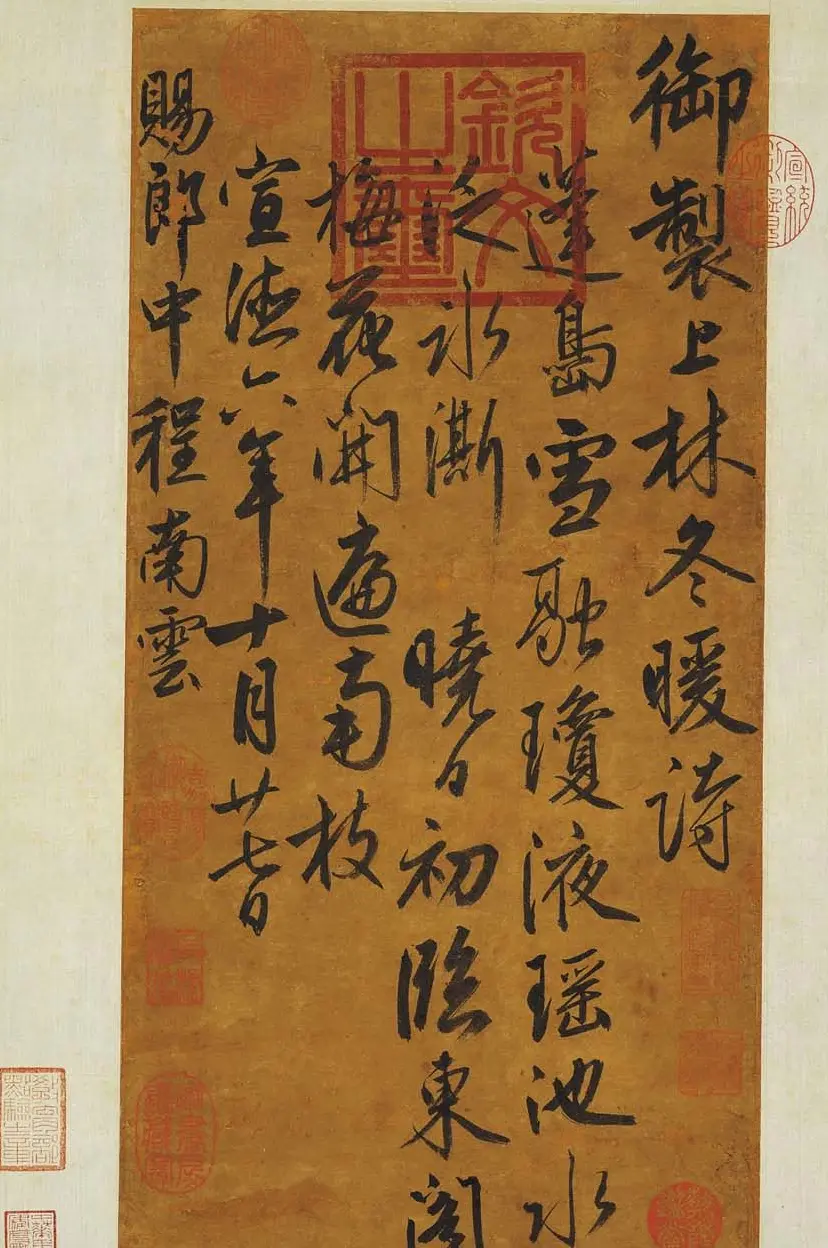 御製上林冬暖詩
蓬島雪融瓊液瑶池水
泛氷澌 曉日初臨東閣
梅花開遍南枝
宣德六年十月廿七日
賜郎中程南雲
欽文之璽